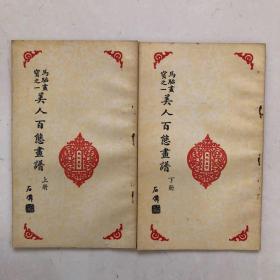 馬駘畫
寶之一
美人百態畫譜
上冊
石儕
馬駘畫
寶之一
美人百態畫譜
下冊
石儕